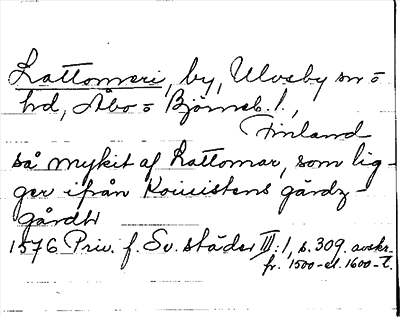 Lattomeri, by, Ulvsby sn o
hd, Åbo o Björneb. l.,
Finland
så mykit af Lattomar, som lig-
ger ifrån Koivistens gårdz-
gårdh
1576 Priv. f. Sv. städer III:1, s. 309. avskr.
fr. 1500-el. 1600-t.